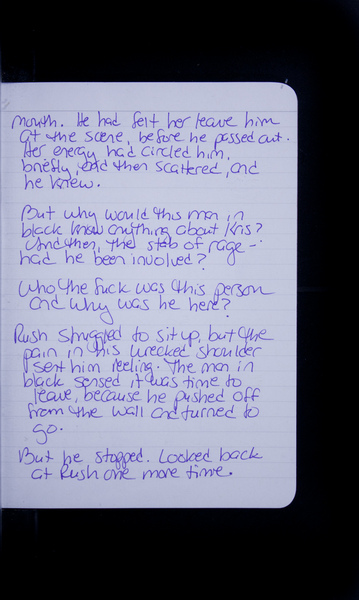 mouth. He had felt her leave him
at the scene, before he passed out.
Her energy had circled him,
briefly, and then scattered, and
he knew.
But why would this man in
black know anything about Kris?
And then, the stab of rage -
had he been involved?
Who the fuck was this person
and why was he here?
Rush struggled to sit up, but the
pain in his wrecked shoulder
sent him reeling. The man in
black sensed it was time to
leave, because he pushed off
from the wall and turned to
go.
But he stopped. Looked back
at Rush one more time.